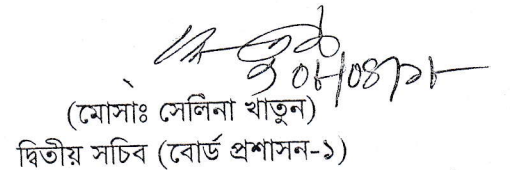 (মোসাঃ সেলিনা খাতুন)
দ্বিতীয় সচিব (বোর্ড প্রশাসন-১)